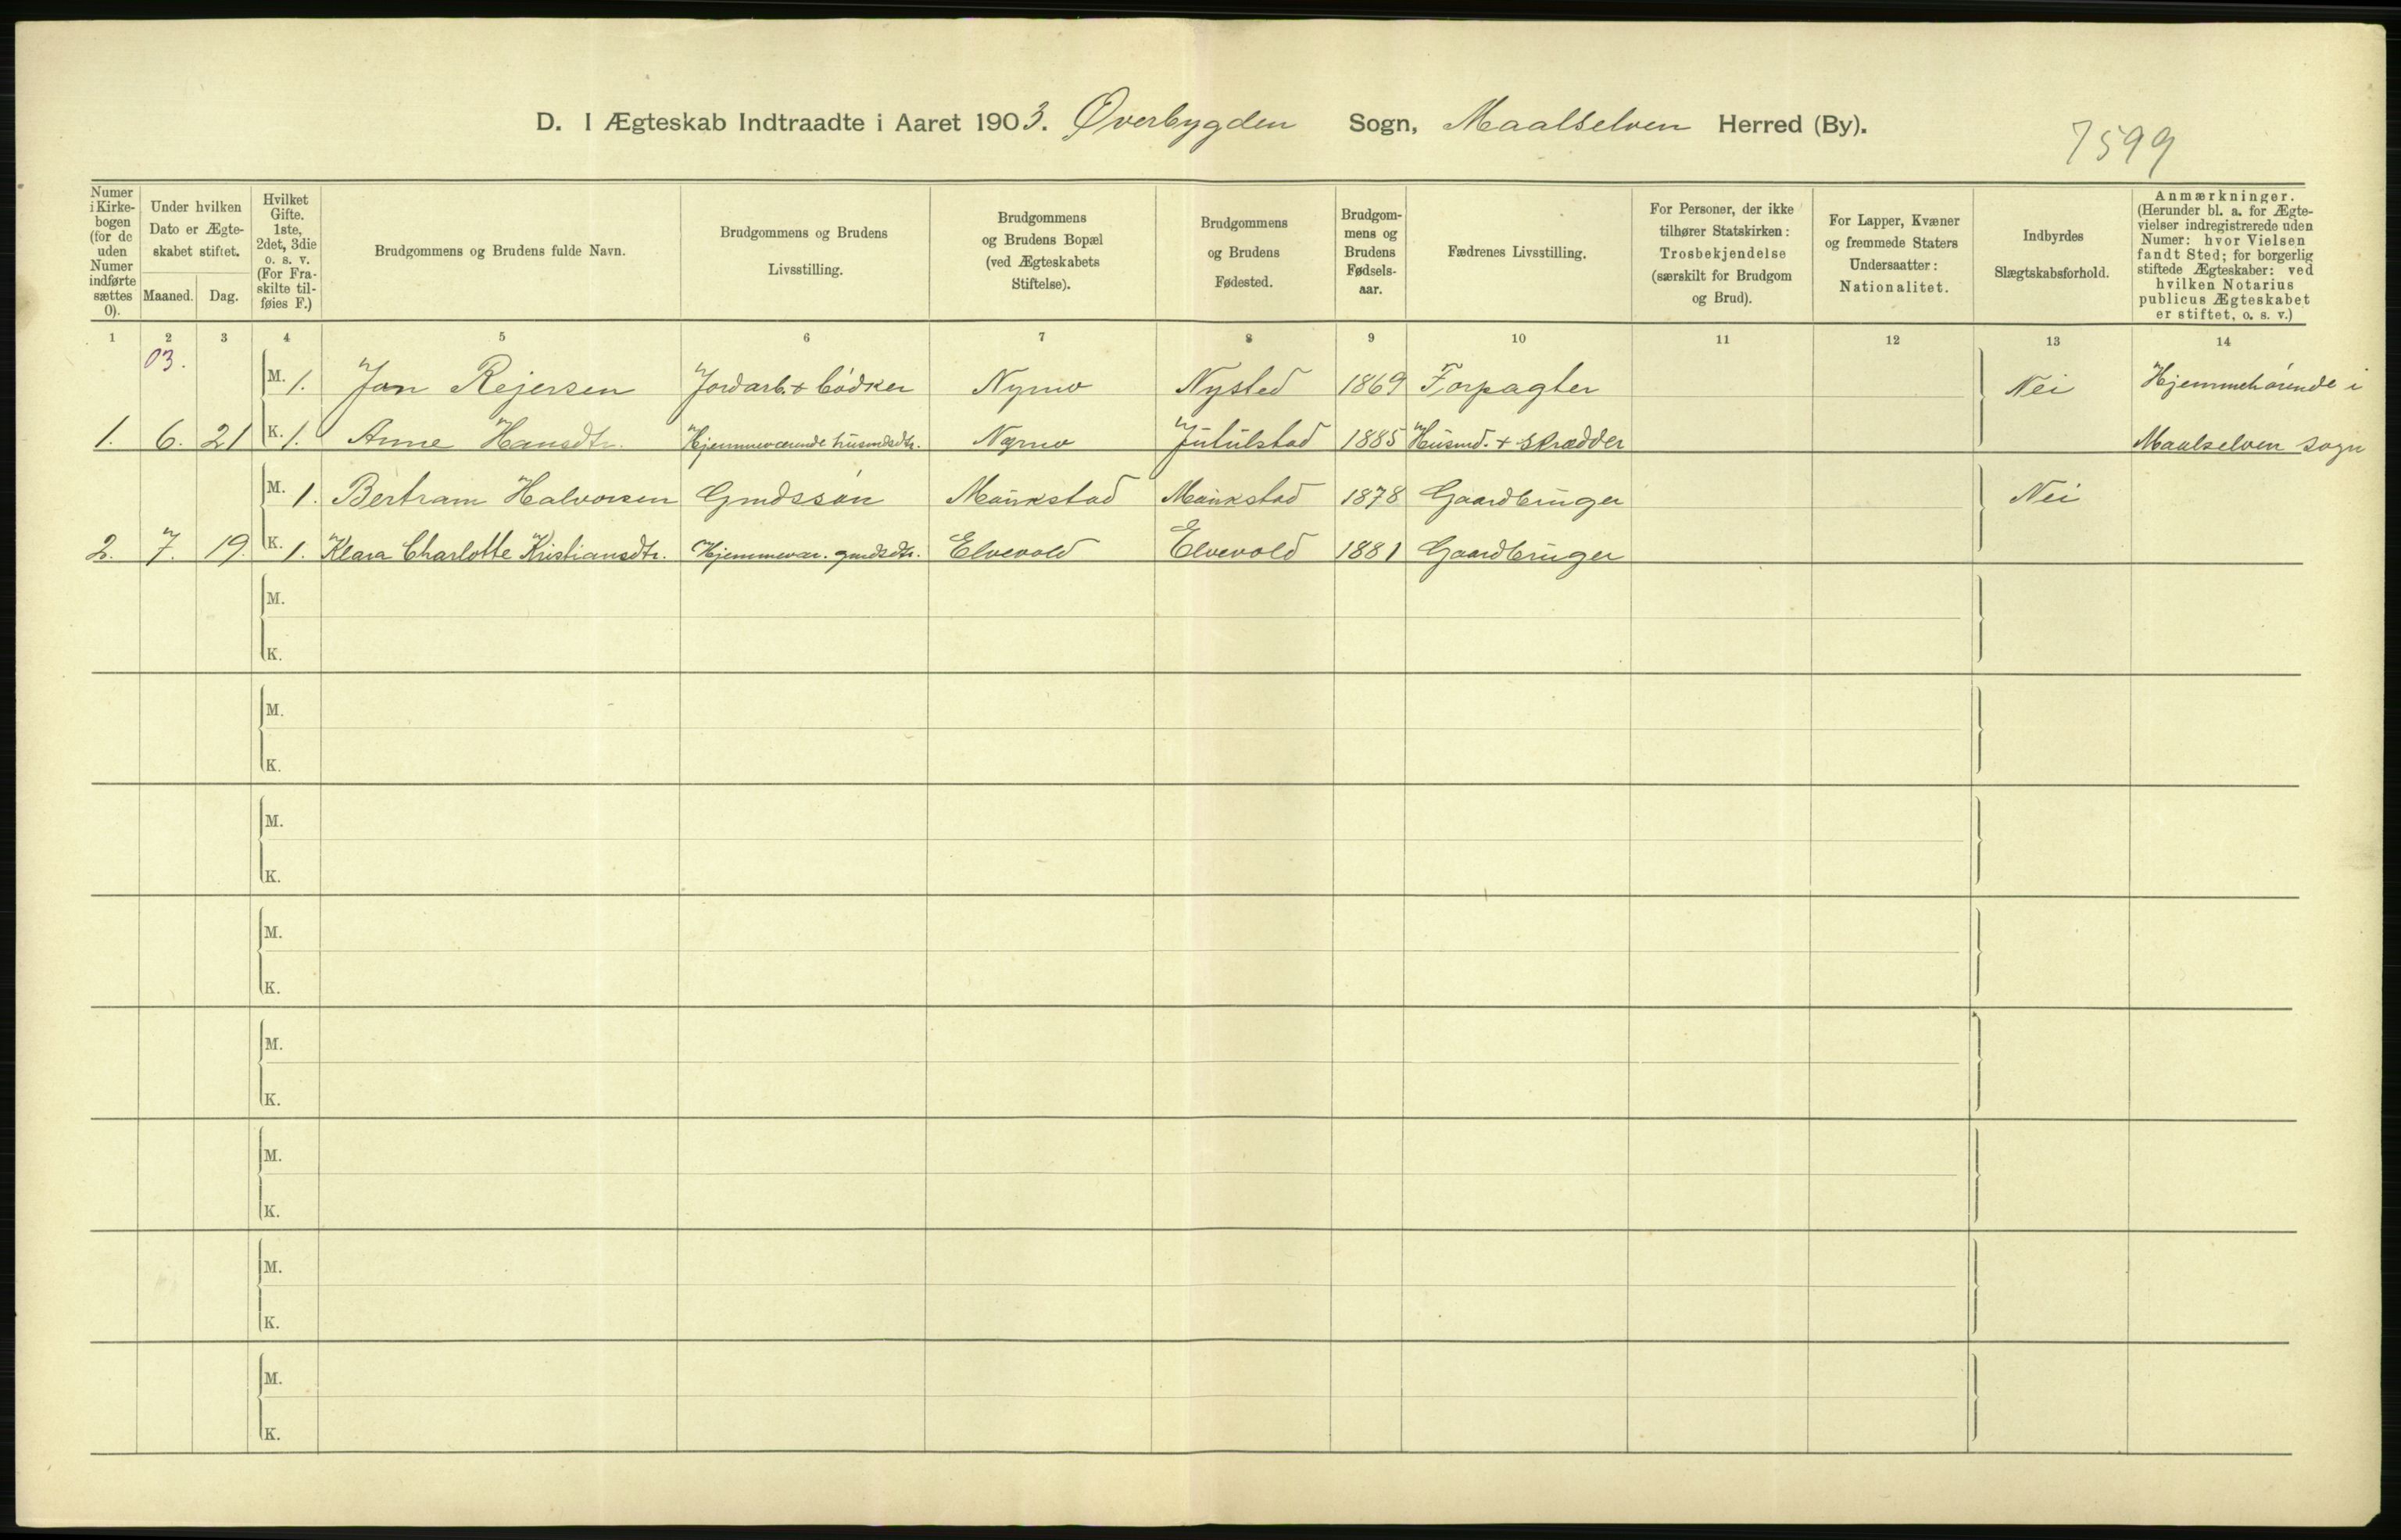 D. I Ægteskab Indtraadte i Aaret 1903. Øverbygden Sogn, Maalselven Herred (By).
7599
Numer
i Kirke-
bogen
(for de
uden
Numer
indførte
sættes
0).
Under hvilken
Dato er Ægte-
skabet stiftet.
Maaned. Dag.
Hvilket
Gifte.
1ste,
2det, 3die
o. s. v.
(For Fra-
skilte til-
føies F.)
Brudgommens og Brudens fulde Navn.
Brudgommens og Brudens
Livsstilling.
Brudgommens
og Brudens Bopæl
(ved Ægteskabets
Stiftelse).
Brudgommens
og Brudens
Fødested.
Brudgom-
mens og
Brudens
Fødsels-
aar.
Fædrenes Livsstilling.
For Personer, der ikke
tilhører Statskirken:
Trosbekjendelse
(særskilt for Brudgom
og Brud).
For Lapper, Kvæner
og fremmede Staters
Undersaatter:
Nationalitet.
Indbyrdes
Slægtskabsforhold.
Anmærkninger.
(Herunder bl. a. for Ægte-
vielser indregistrerede uden
Numer: hvor Vielsen
fandt Sted; for borgerlig
stiftede Ægteskaber: ved
hvilken Notarius
publicus Ægteskabet
er stiftet, o. s. v.)
1 2 3 4 5 6 7 8 9 10 11 12 13 14
03.
M. 1. Jon Rejersen Jordarb. + bödker Nymo Nysted 1869 Forpagter Nei Hjemmehörende i
1. 6. 21 K. 1. Anne Hansdtr. Hjemmeværende husmdsdtr. Nymo Jutulstad 1885 Husmd. + skrædder Maalselven sogn
M. 1. Bertram Halvorsen Gmdssön Maukstad Maukstad 1878 Gaardbruger Nei
2. 7. 19. K. 1. Klara Charlotte Kristiansdtr. Hjemmevær. gmdsdtr. Elvevold Elvevold 1881 Gaardbruger
M.
K.
M.
K.
M.
K.
M.
K.
M.
K.
M.
K.
M.
K.
M.
K.